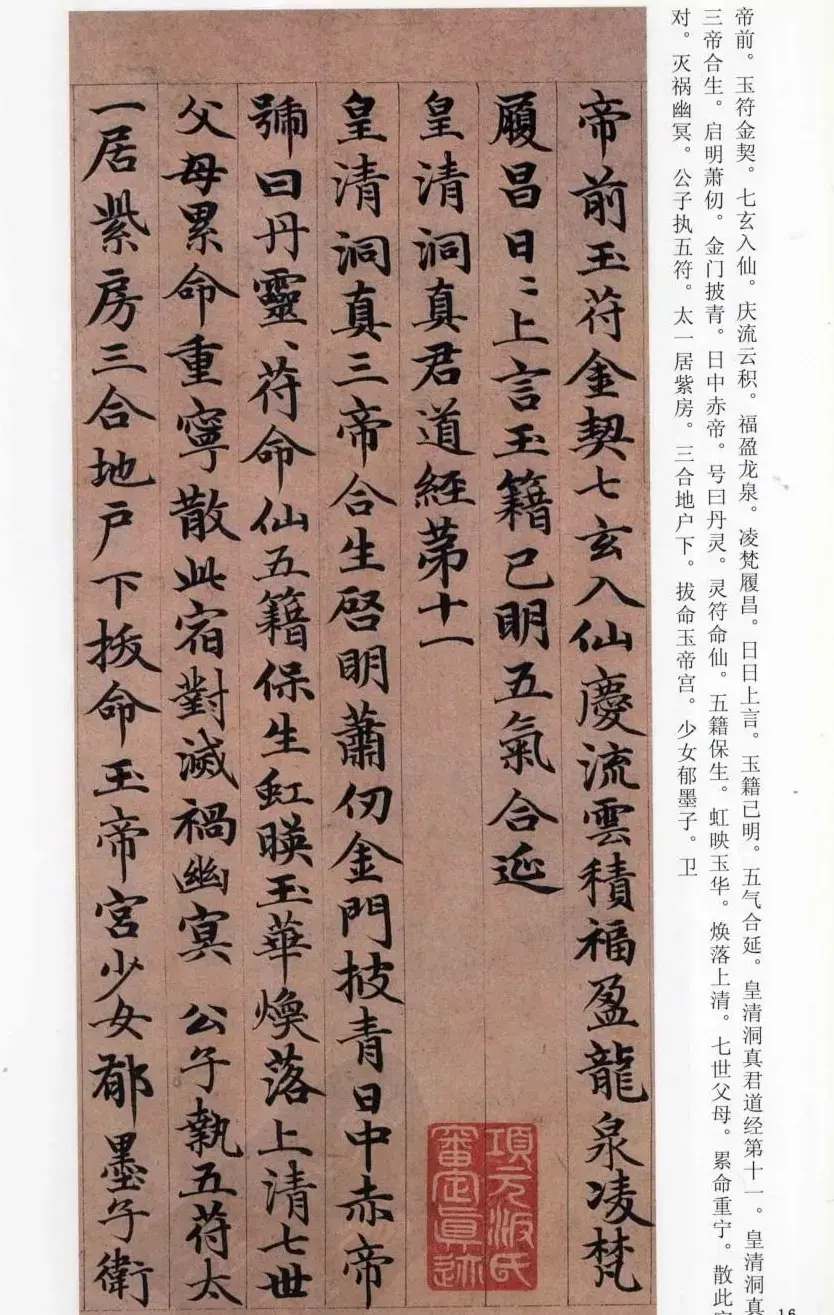 帝前。玉符金契。七玄入仙。庆流云积。福盈龙泉。凌梵履昌。日日上言。玉籍已明。五气合延。皇清洞真君道经第十一。皇清洞真
三帝合生。启明萧仞。金门披青。日中赤帝。号曰丹灵。灵符命仙。五籍保生。虹映玉华。焕落上清。七世父母。累命重宁。散此
对。灭祸幽冥。公子执五符。太一居紫房。三合地户下。拔命玉帝宫。少女郁墨子。卫
帝前玉苻金契七玄入仙慶流雲積福盈龍泉凌梵
履昌日〻上言玉籍已明五氣合延
皇清洞真君道經苐十一
皇清洞真三帝合生啓明蕭仞金門披青日中赤帝
號曰丹靈〻苻命仙五籍保生虹暎玉華煥落上清七世
父母累命重寧散此宿對滅禍幽冥 公子執五苻太
一居紫房三合地戶下拔命玉帝宮少女郁墨子衛
項元汴氏
審定真迹
16